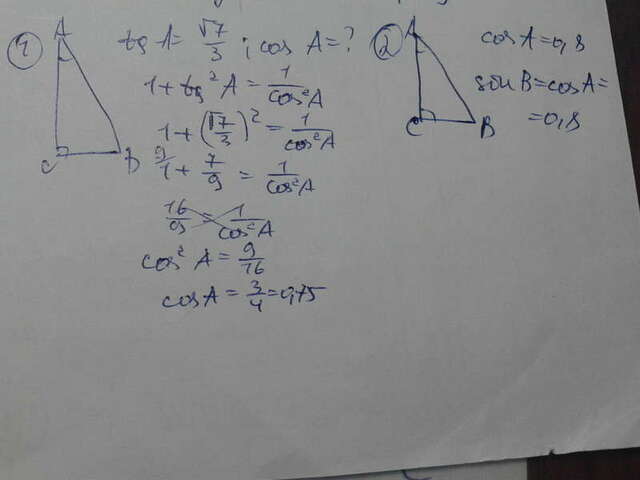 1
A
C
B
tg A = √7/3 ; cos A = ?
1 + tg² A = 1/cos² A
1 + (√7/3)² = 1/cos² A
9/1 + 7/9 = 1/cos² A
16/9 = 1/cos² A
cos² A = 9/16
cos A = 3/4 = 0,75
2
A
C
B
cos A = 0,8
sin B = cos A =
= 0,8